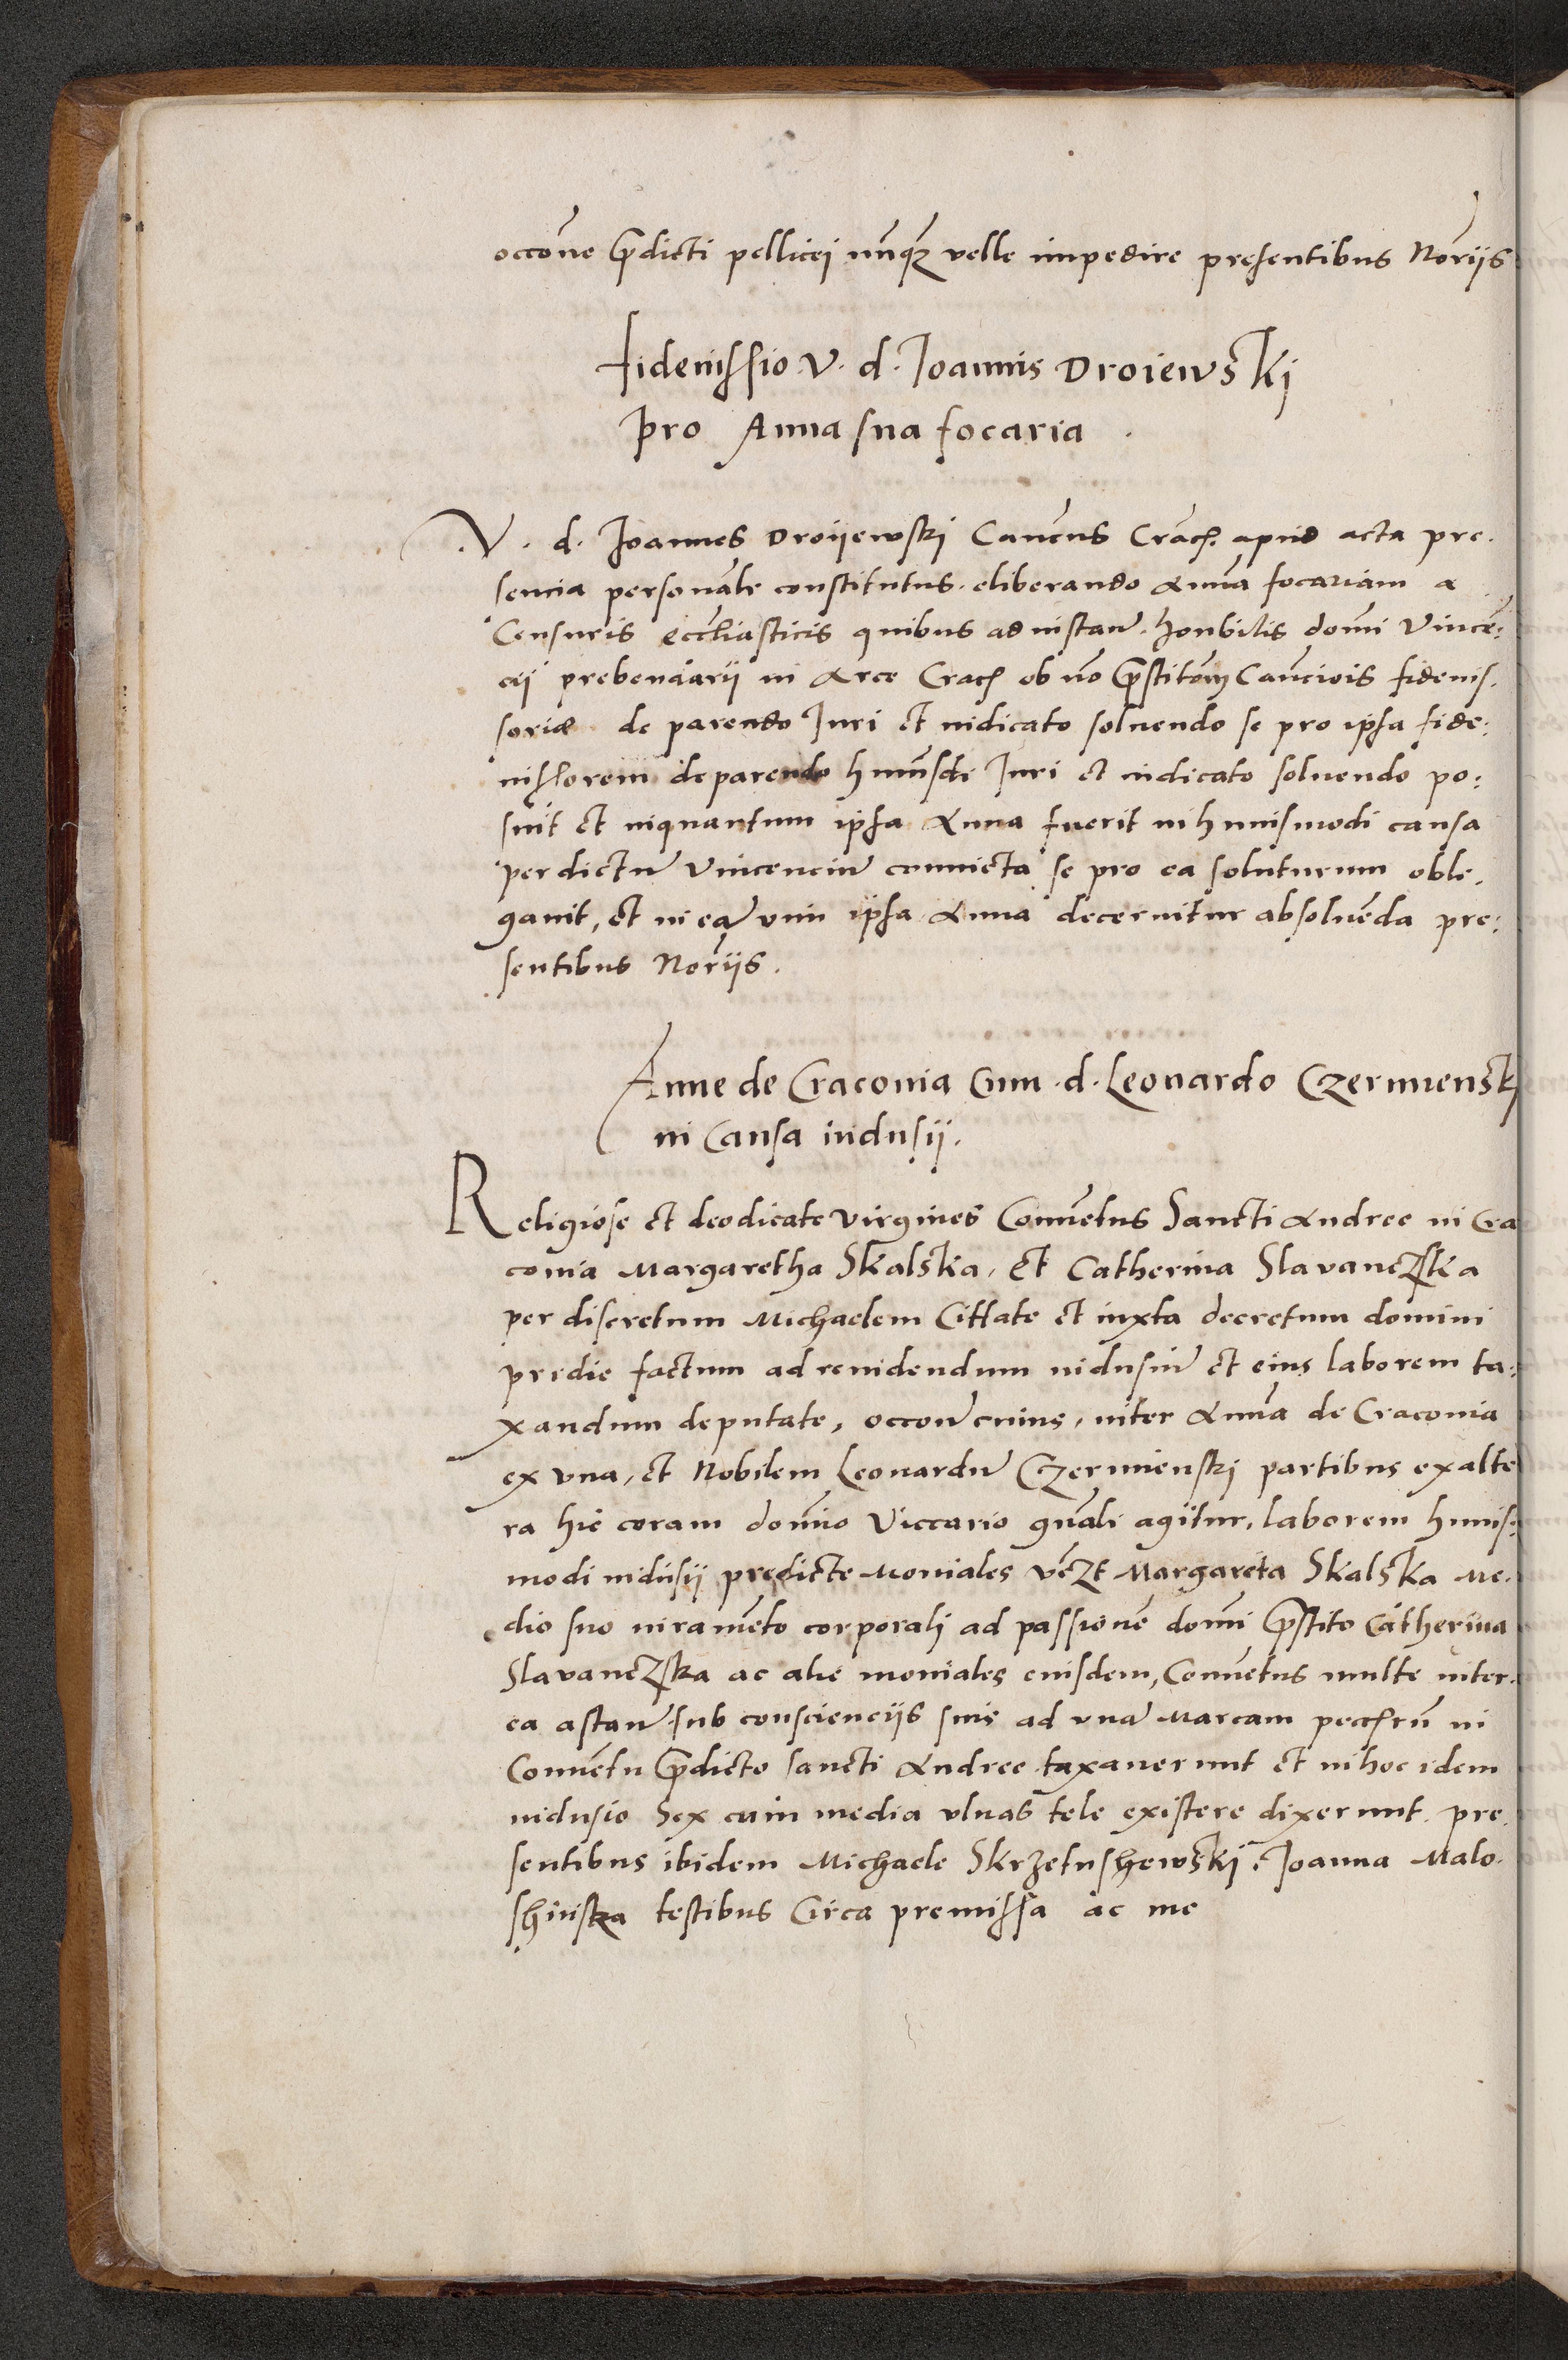 occone p̃dicti pellicej nunq̃ velle impedire presentibus Norijs
fideiussio v. d. Joannis Droiewskj
pro Anna sua focaria.
.V. d. Joannes Droijewskj Canẽcus Crach. apud acta pre-
sencia personalr constitutus. eliberando Annã focariam a
Censuris eccl̃iasticis quibus ad instanr. honbilis domĩ Vincẽ:
cij prebendarij in Arce Crach ob nõ p̃stitõem Cauciõis fideius.
soriæ de parendo Juri et iudicato soluendo se pro ipsa fide:
iussorem de parendo hmũsdi Juri et iudicato soluendo po:
suit et inquantum ipsa Anna fuerit in huiusmodi causa
per dictũ Vincenciũ conuicta se pro ea soluturum oble.
gauit, et in eã vim ipsa Anna decernitur absoluẽda pre:
sentibus Norijs.
Anne de Craconia Cum .d. Leonardo Czermienskj
in Causa indusij.
Religiose et deodicate virgines Conuẽtus Sancti Andree in Cra
conia Margaretha Skalska, et Catherina Slavanczska
per discretum Michaelem Cittate et iuxta decretum domini
pridie factum ad reuidendum indusiũ et eius laborem ta:
xandum deputate, occone cuius, inter Annã de Craconia
ex vna, et Nobilem Leonardũ Czermienskj partibus ex alte
ra hic coram domĩo Viccario gnãli agitur, laborem huius:
modi indusij predicte Moniales vẽzt Margareta Skalska Me.
dio suo iuramẽto corporalj ad passionẽ domĩ p̃stito Catherina
Slavanczska ac alie moniales euisdem, Conuẽtus multe inter.
ea astanr sub consciencijs suis ad vnã Marcam peccñrũ in
Conuẽtu p̃dicto sancti Andree taxauerunt et in hoc idem
indusio Sex cum media vlnas tele existere dixerunt. pre.
sentibus ibidem Michaele Skrzetushewskj, Joanna Malo.
shinska testibus Circa premissa ac me